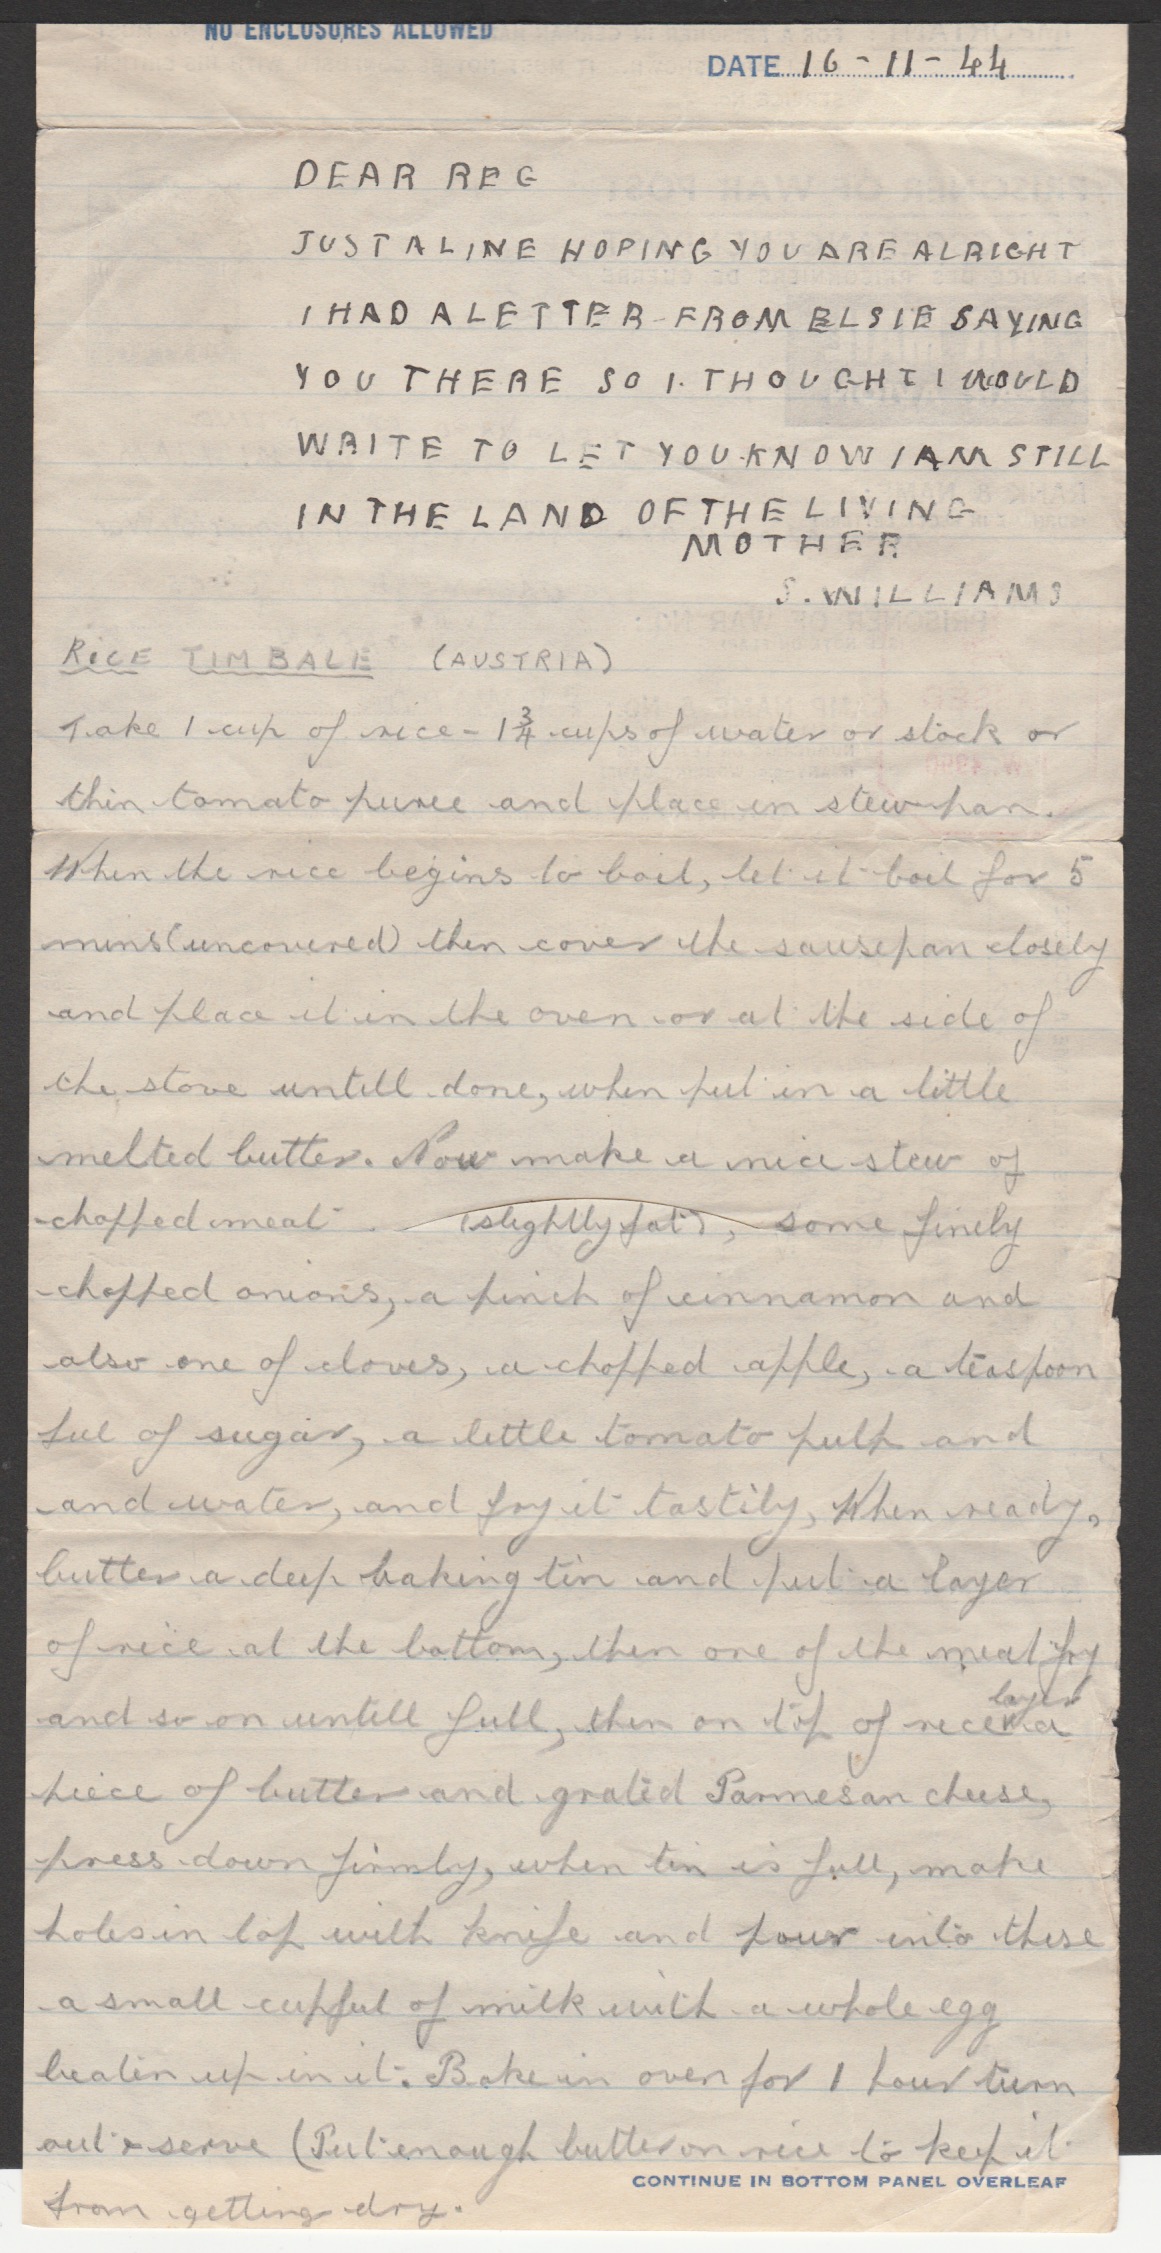 NO ENCLOSURES ALLOWED
DATE 16-11-44
DEAR REG
JUST A LINE HOPING YOU ARE ALRIGHT
I HAD A LETTER FROM ELSIE SAYING
YOU THERE SO I THOUGHT I WOULD
WRITE TO LET YOU KNOW I AM STILL
IN THE LAND OF THE LIVING
MOTHER
S. WILLIAMS
RICE TIMBALE (AUSTRIA)
Take 1 cup of rice - 1 3/4 cups of water or stock or
thin tomato puree and place in stew-pan.
When the rice begins to boil, let it boil for 5
mins (uncovered) then cover the sausepan closely
and place it in the oven or at the side of
the stove untill done, when put in a little
melted butter. Now make a nice stew of
chopped meat (slightly fat), some finely
chopped onions, a pinch of cinnamon and
also one of cloves, a chopped apple, a teaspoon
ful of sugar, a little tomato pulp and
and water, and fry it tastily, When ready,
butter a deep baking tin and put a layer
of rice at the bottom, then one of the meat fry
and so on untill full, then on top of rice layer a
piece of butter and grated Parmesan cheese,
press down firmly, when tin is full, make
holes in top with knife and pour into these
a small cupful of milk with a whole egg
beaten up in it. Bake in oven for 1 hour turn
out & serve (Put enough butter on rice to keep it
CONTINUE IN BOTTOM PANEL OVERLEAF
from getting dry.